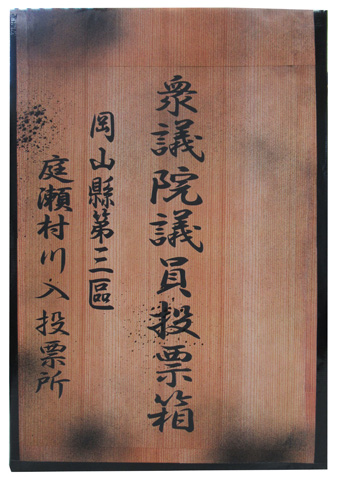 衆議院議員投票箱
岡山縣第三區
庭瀬村川入投票所